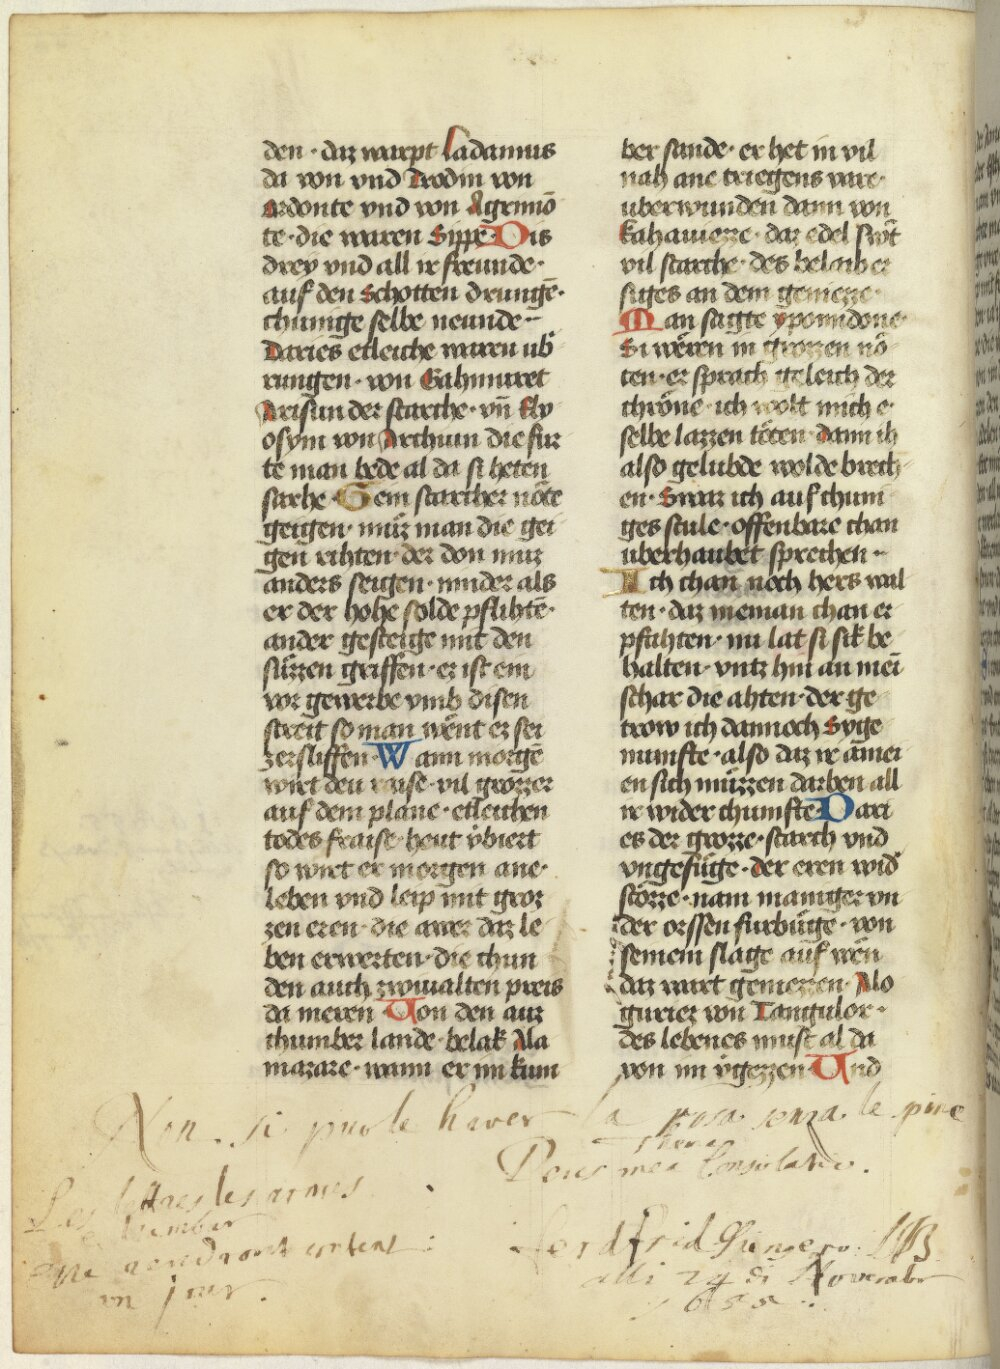 den · daz warpt Ladannus
da von vnd Drodin von
Ardonte vnd von Agrimō
te · die waren Sippe · Dis
drey vnd all ir freunde ·
auf den Schotten drungē ·
chunige selbe neunde ·
Daries etleiche waren ub̄
rungen · von Gahmuret
Arisun der starche · vn̄ Kly
osym von Archun die fur
te man bede al da si heten
sarhe · Gein starcher nōte
geigen · mūz man die gei
gen rihten · der don muz
anders seigen · minder als
er der hohe solde pflihtē ·
ander gesteige mit den
sūzzen griffen · ez ist ein
vor gewerbe vmb disen
streit so man wēnt er sei
zersliffen · Wann morgē
wirt deu raise · vil grozzer
auf dem plane · etleichen
todes fraise · heut v̄biert
so wirt er morgen ane ·
leben vnd leip mit groz
zen eren · die awer daz le
ben erwerten · die chun
den auch zwiualten preis
da meren · Von den auz
thumber lande · belak Ala
mazare · wann er im kum
ber sande · er het in vil
nah ane triegens vare ·
uberwunden dann von
kahauiezze · daz edel swt̄
vil starche · des belaib er
siges an dem geniezze ·
Man sagte yponnidone
Si wēren in grozzen nō
ten · er sprach geleich der
chrōne · ich wolt mich e ·
selbe lazzen tōten · dann ih
also gelubde wolde brech
en · Swaz ich auf chuni
ges stule · offenbare chan
uberhaubet sprechen ·
Ich chan noch hers wal
ten · daz nieman chan er
pfahten · nu lat si sik be
halten · vntz hin an mei
schar die ahten · der ge
trow ich dannoch Syge
nunfte · also daz ir āmei
en sich mūzzen darben all
ir wider chumfte · Dari
es der grozze · starch vnd
vngefūge · der eren wid̄
stōzze · nam maniger vn
der orssen furbūge · von
seinem slage auf wēn
daz wart geniezzen · Alo
gurier von Tangulor ·
des lebenes must al da
von im v̄gezzen · Vnd
Non . si puole haver la rosa senza le spine
Deus mea Consolatio .
Les lettres les armes
me rendront content
un jour .
alli 24 di Novembr